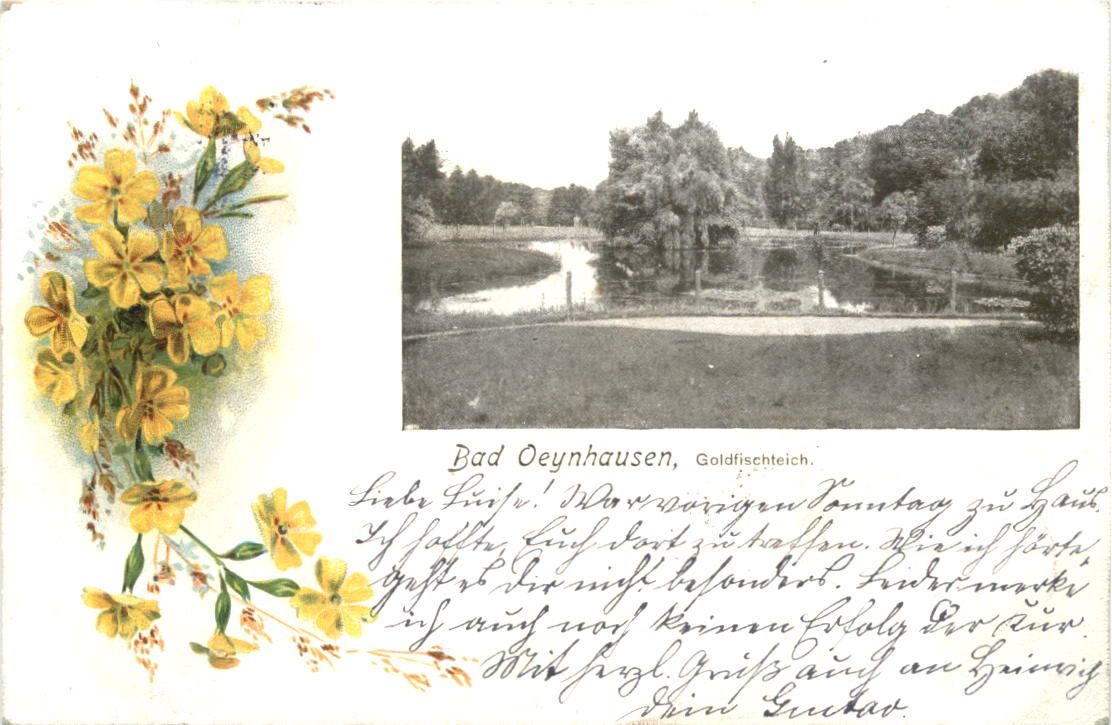 Bad Oeynhausen, Goldfischteich.
Liebe Luise! War vorigen Sonntag zu Haus.
Ich hoffte, Euch dort zu treffen. Wie ich hörte
geht es Dir nicht besonders. Leider merke
ich auch noch keinen Erfolg der Kur.
Mit herzl. Gruß auch an Heinrich
Dein Gustav.